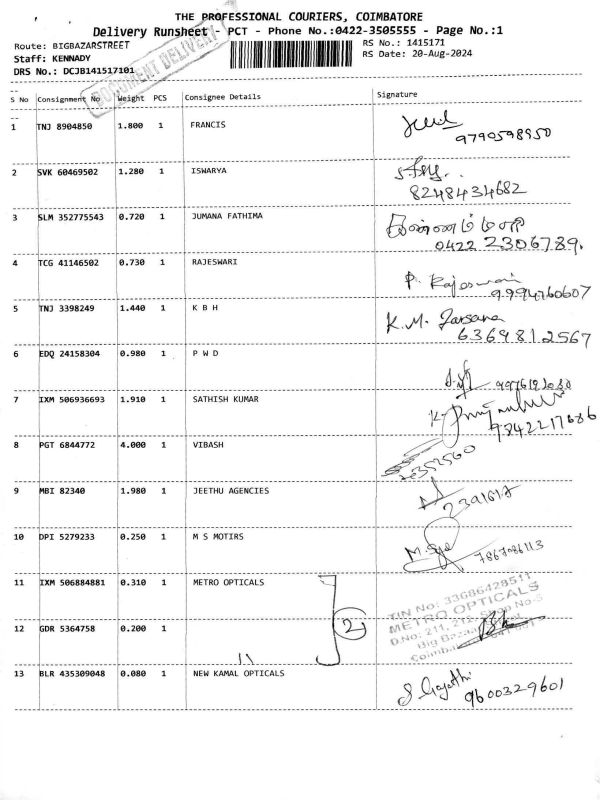 THE PROFESSIONAL COURIERS, COIMBATORE
Delivery Runsheet - PCT - Phone No.:0422-3505555 - Page No.:1
Route: BIGBAZARSTREET
RS No.: 1415171
Staff: KENNADY
RS Date: 20-Aug-2024
DRS No.: DCJB141517101
DOCUMENT DELIVERY
S No Consignment No Weight PCS Consignee Details Signature
1 TNJ 8904850 1.800 1 FRANCIS
9790598950
2 SVK 60469502 1.280 1 ISWARYA
8248434682
3 SLM 352775543 0.720 1 JUMANA FATHIMA
0422 2306789.
4 TCG 41146502 0.730 1 RAJESWARI
P. Rajeswari
9994760607
5 TNJ 3398249 1.440 1 K B H
K.M. Farsana
6369812567
6 EDQ 24158304 0.980 1 P W D
7 IXM 506936693 1.910 1 SATHISH KUMAR
9842217686
8 PGT 6844772 4.000 1 VIBASH
352560
9 MBI 82340 1.980 1 JEETHU AGENCIES
10 DPI 5279233 0.250 1 M S MOTIRS
7867086113
11 IXM 506884881 0.310 1 METRO OPTICALS
TIN No: 33686428511
METRO OPTICALS
2
D.No: 211, 212, Shop No-5
12 GDR 5364758 0.200 1
Big Bazaar
13 BLR 435309048 0.080 1 NEW KAMAL OPTICALS
S. Gayathi
9600329601